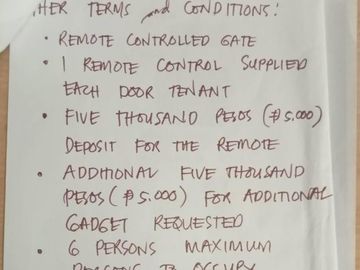 HER TERMS and CONDITIONS:
• REMOTE CONTROLLED GATE
• 1 REMOTE CONTROL SUPPLIED
EACH DOOR TENANT
• FIVE THOUSAND PESOS (₱5.000)
DEPOSIT FOR THE REMOTE
• ADDITIONAL FIVE THOUSAND
PESOS (₱5.000) FOR ADDITIONAL
GADGET REQUESTED
• 6 PERSONS MAXIMUM
PERSONS TO OCCUPY